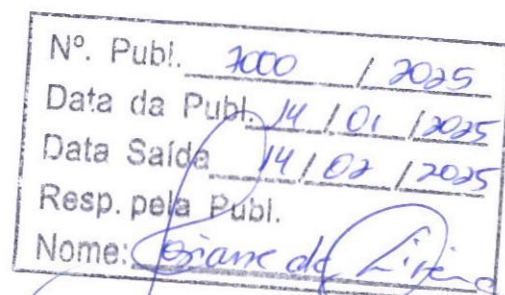 Nº. Publ. 7000 / 2025
Data da Publ. 14 / 01 / 2025
Data Saída 14 / 02 / 2025
Resp. pela Publ.
Nome: de